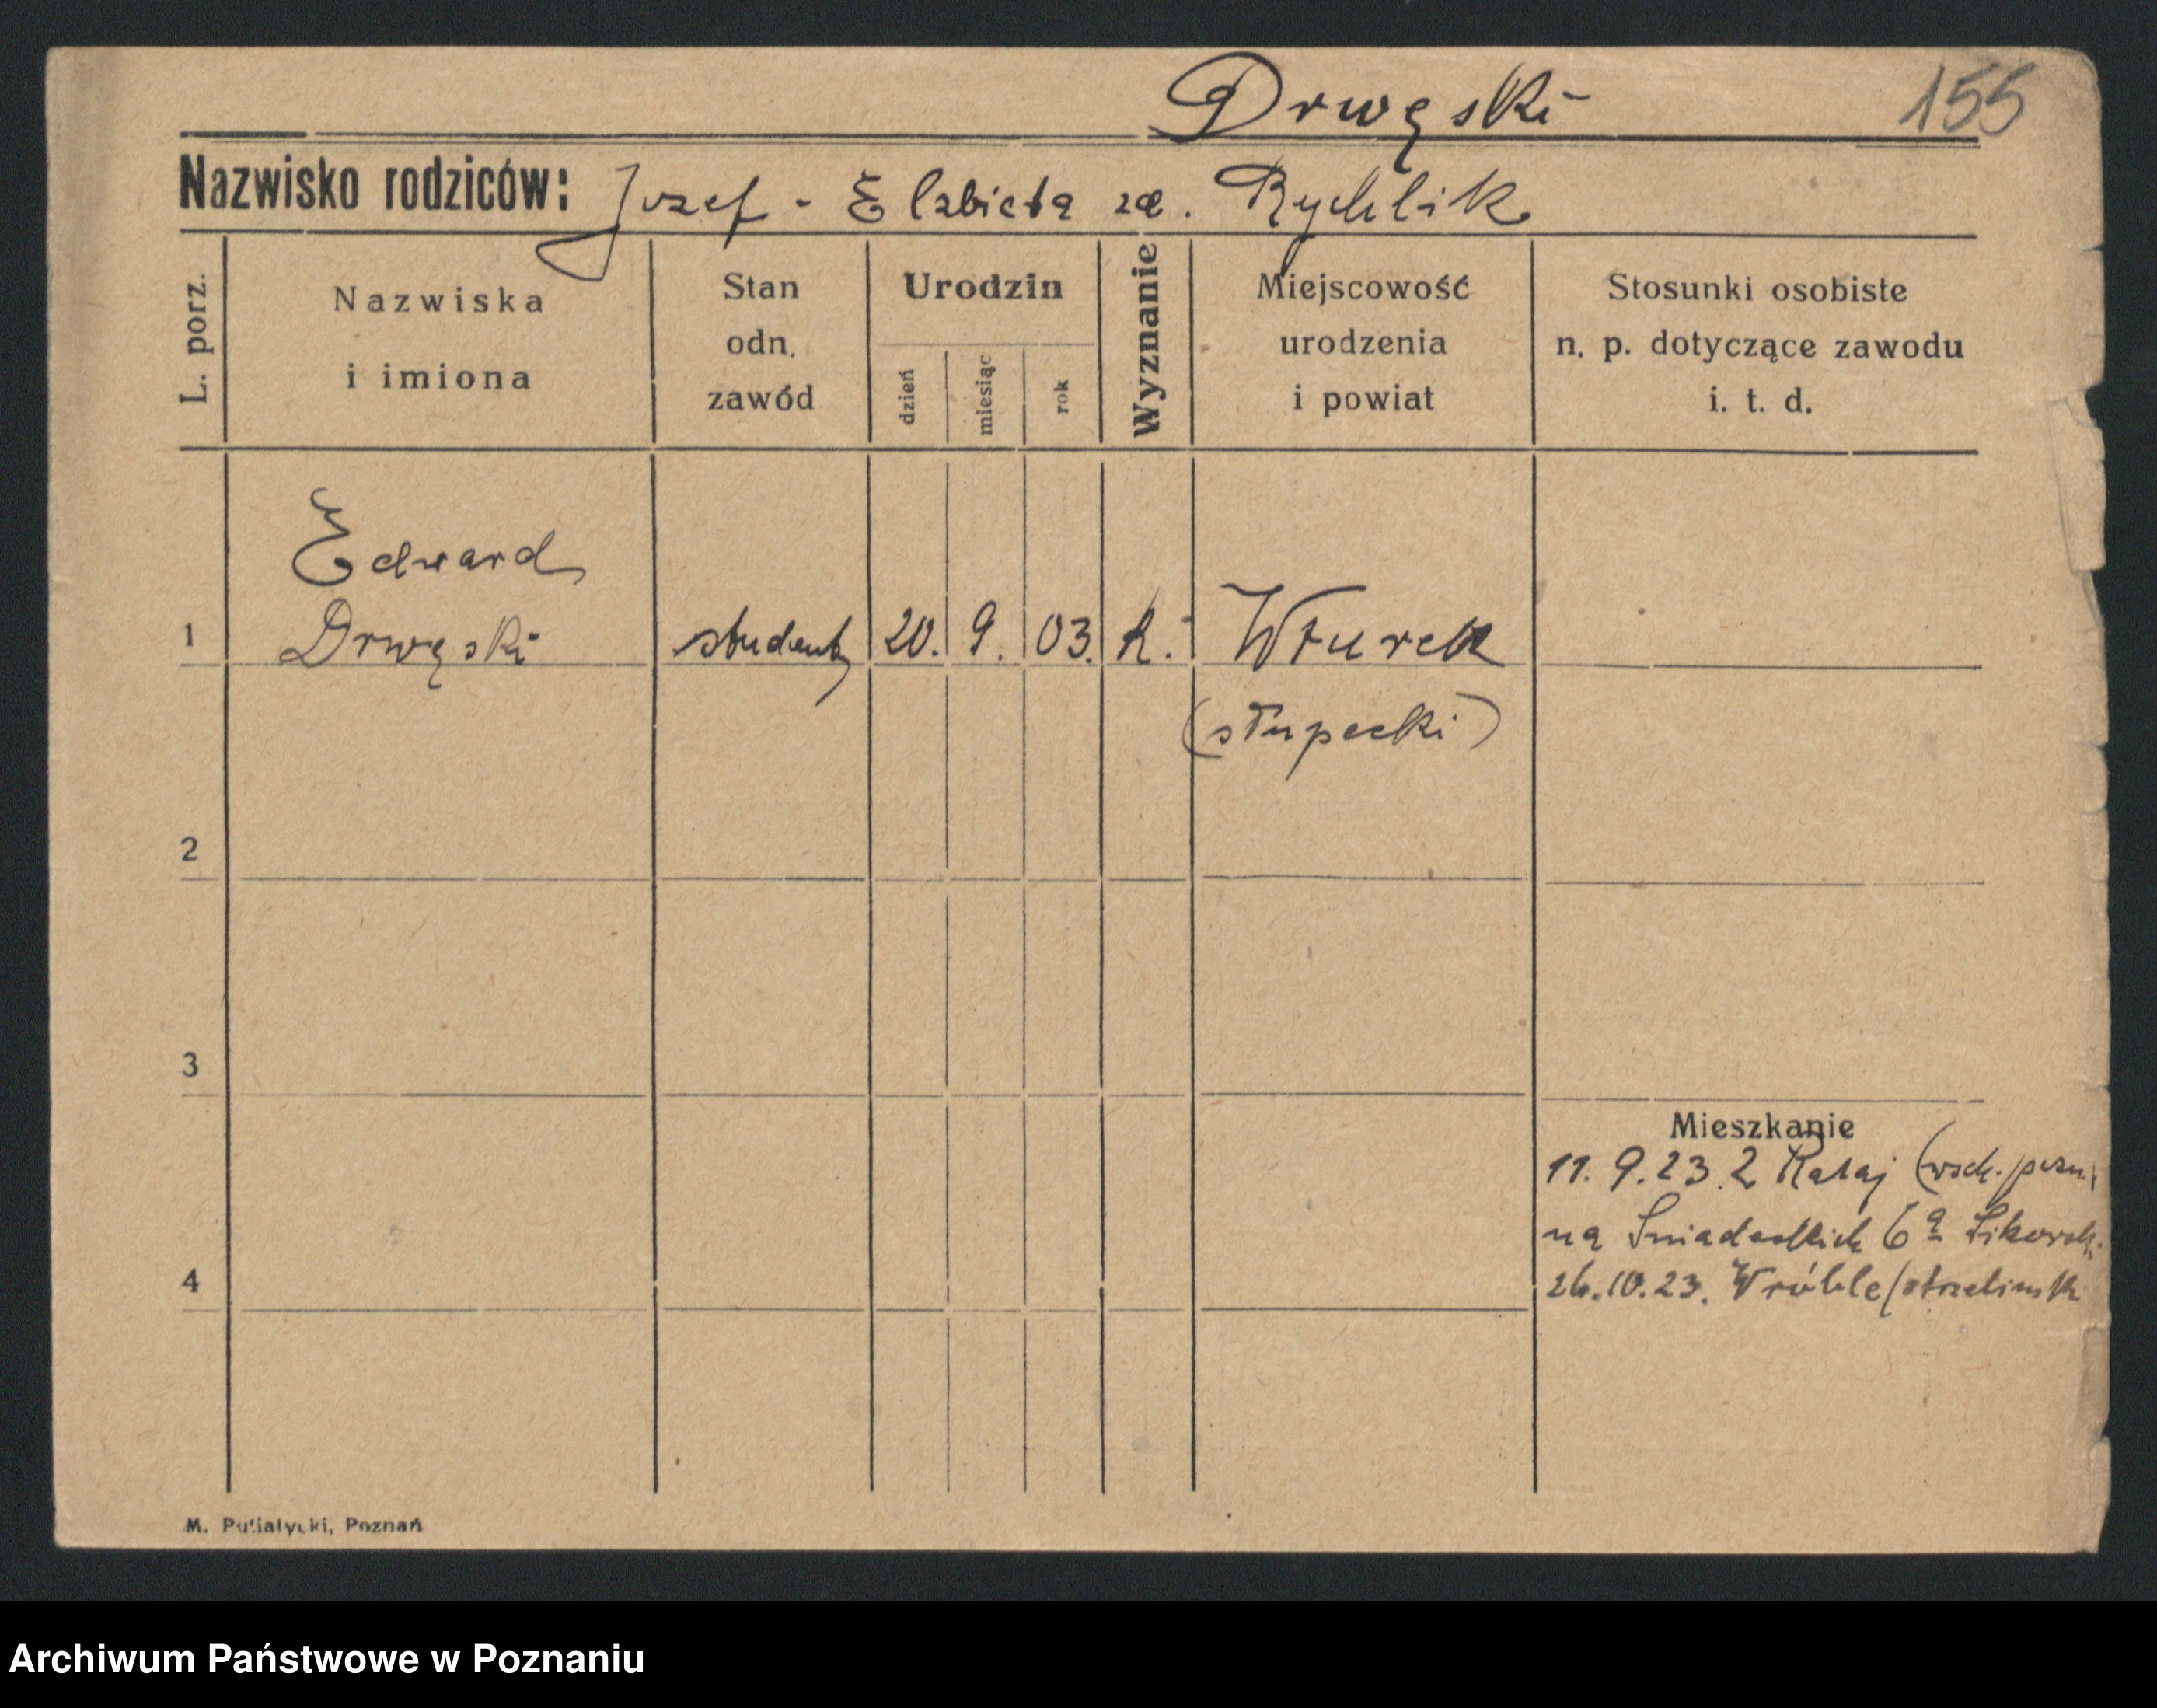 Drwęski 155
Nazwisko rodziców: Jozef - Elzbieta zd. Rychlik
L. porz.
Nazwiska i imiona
Stan odn. zawód
Urodzin
dzień
miesiąc
rok
Wyznanie
Miejscowość urodzenia i powiat
Stosunki osobiste n. p. dotyczące zawodu i. t. d.
Edward
1 Drwęski student 20. 9. 03. k. Wturek
(słupecki)
2
3
Mieszkanie
11. 9. 23. z Rataj (wsch. pozn.
na Sniadeckich 6a Sikorsk.
26.10.23. Wróble (strzelinsk
4
M. Putiatycki, Poznań
Archiwum Państwowe w Poznaniu